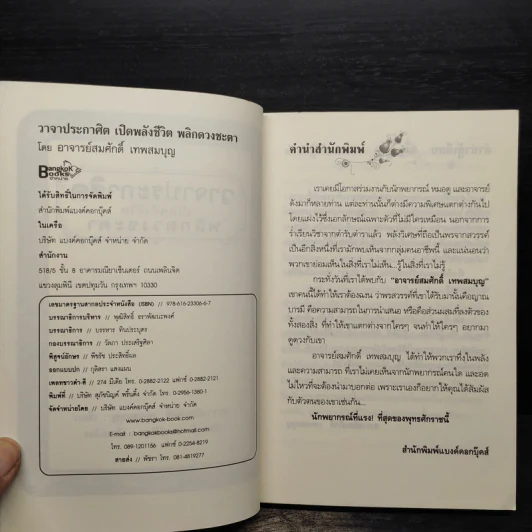 วาจาประกาศิต เปิดพลังชีวิต พลิกดวงชะตา
โดย อาจารย์สมศักดิ์ เทพสมบุญ
Bangkok
Books
ได้รับสิทธิ์ในการจัดพิมพ์
สำนักพิมพ์แบงค์คอกบุ๊คส์
ในเครือ
บริษัท แบงค์คอกบุ๊คส์ จำหน่าย จำกัด
สำนักงาน
518/5 ชั้น 8 อาคารมณียาเซ็นเตอร์ ถนนเพลินจิต
แขวงลุมพินี เขตปทุมวัน กรุงเทพฯ 10330
เลขมาตรฐานสากลประจำหนังสือ (ISBN) // 978-616-23306-6-7
บรรณาธิการบริหาร //
บรรณาธิการ // บรรหาร
กองบรรณาธิการ // วัลภา ประเสริฐศิลา
พิสูจน์อักษร // พีรชัย ประสิทธิ์ผล
ออกแบบปก // ภูลิศา แสงแมน
เพลทขาวดำ-สี // 274 มีเดีย โทร. 0-2882-2122 แฟกซ์ 0-2882-2121
พิมพ์ที่ // บริษัท พริ้นติ้ง จำกัด โทร. 0-2956-1380-1
จัดจำหน่ายโดย // บริษัท แบงค์คอกบุ๊คส์ จำหน่าย จำกัด
www.bangkok-book.com
E-mail : bangkokbooks@hotmail.com
โทร. 089-1201156 แฟกซ์ 0-2254-8219
สายส่ง // พัชรา โทร. 081-4819277
คำนำสำนักพิมพ์
เราเคยมีโอกาสร่วมงานกับนักพยากรณ์ หมอดู และอาจารย์
ดังมาก็หลายท่าน แต่ละท่านต่างก็มีความพิเศษแตกต่างกันไป
โดยแฝงไว้ซึ่งเอกลักษณ์เฉพาะตัวที่ไม่มีใครเหมือน นอกจากการ
ร่ำเรียนวิชาจากตำรับตำราแล้ว พลังวิเศษที่ถือเป็นพรจากสวรรค์
เป็นอีกสิ่งหนึ่งที่เรามักพบเห็นจากกลุ่มคนอาชีพนี้ และแน่นอนว่า
พวกเขาย่อมเห็นในสิ่งที่เราไม่เห็น...รู้ในสิ่งที่เราไม่รู้
กระทั่งวันที่เราได้พบกับ "อาจารย์สมศักดิ์ เทพสมบุญ"
เขาคนนี้ได้ทำให้เราต้องฉงน ว่าพรสวรรค์ที่เขาได้รับมานั้นคือญาณ
บารมี คือความสามารถในการนำเสนอ หรือคือส่วนผสมที่ลงตัวของ
ทั้งสองสิ่ง ที่ทำให้เขาแตกต่างจากใครๆ จนทำให้ใครๆ อยากมา
ดูดวงกับเขา
อาจารย์สมศักดิ์ เทพสมบุญ ได้ทำให้พวกเราทึ่งในพลัง
และความสามารถ ที่เราไม่เคยเห็นจากนักพยากรณ์คนใด และอด
ไม่ไหวที่จะต้องนำมาบอกต่อ เพราะเราเองก็อยากให้คุณได้สัมผัส
กับตัวตนของเขาเช่นกัน...
นักพยากรณ์ที่แรง! ที่สุดของพุทธศักราชนี้
สำนักพิมพ์แบงค์คอกบุ๊คส์